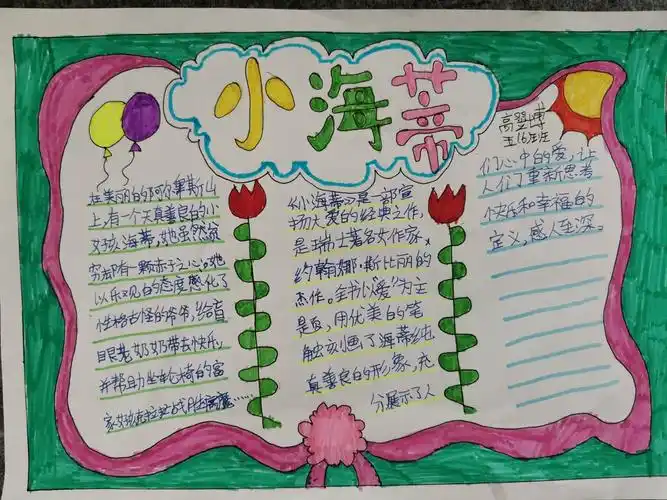 小海蒂
高翌博
五16班
在美丽的阿尔卑斯山
上,有一个天真善良的小
女孩海蒂,她虽然贫
穷却有一颗赤子之心。她
以乐观的态度感化了
性格古怪的爷爷,给盲
眼老奶奶带去快乐,
并帮助坐轮椅的富
家女孩克拉拉战胜病魔……
《小海蒂》是一部宣
扬大爱的经典之作,
是瑞士著名女作家,
约翰娜·斯比丽的
杰作。全书以"爱"为主
是页,用优美的笔
触刻画了海蒂纯
真善良的形象,充
分展示了人
们心中的爱,让
人们了重新思考
快乐和幸福的
定义,感人至深。